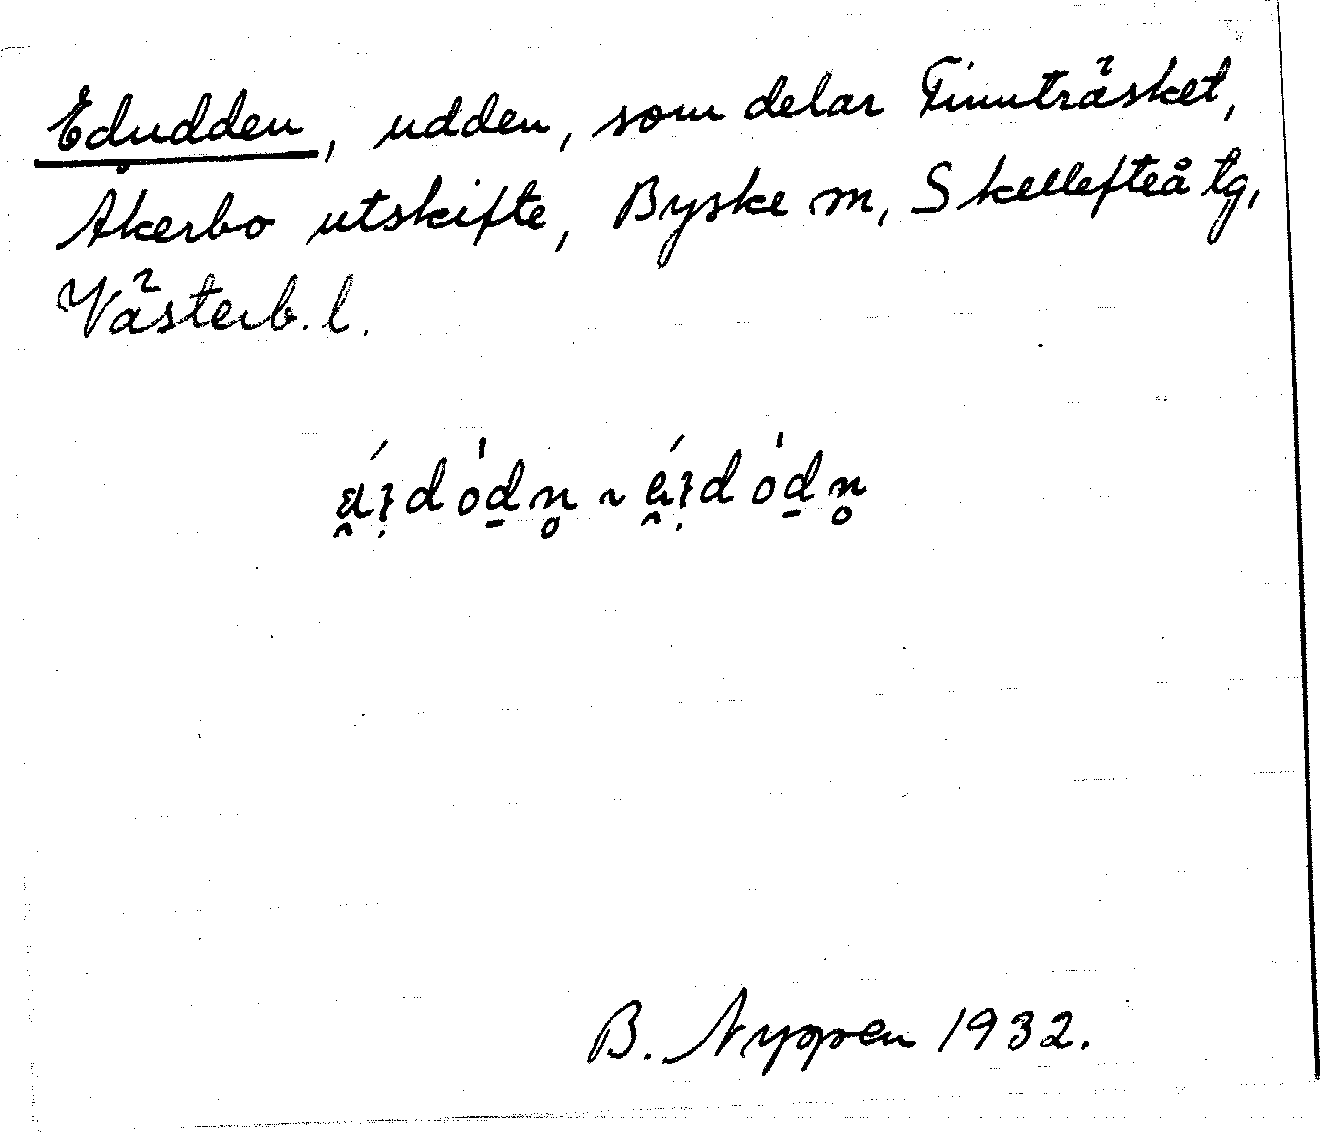 Edudden, udden, som delar Finnträsket,
Åkerbo utskifte, Byske sn, Skellefteå tg,
Västerb. l.
B. Nyman 1932.